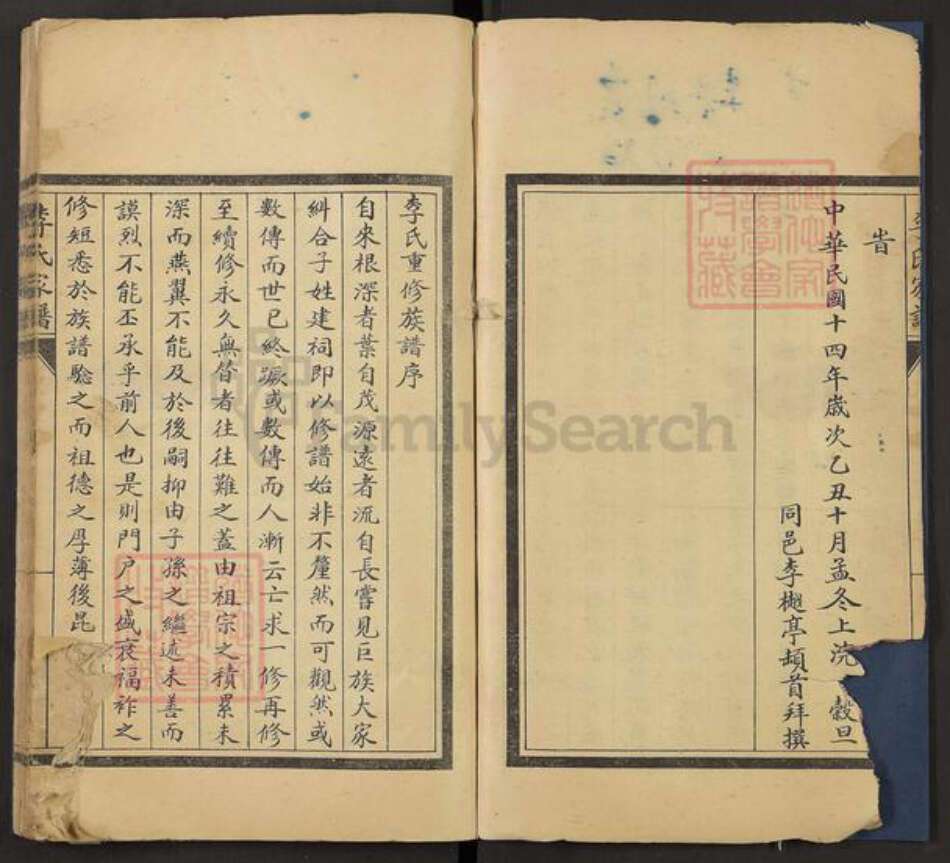 旹
中華民國十四年歲次乙丑十月孟冬上浣 穀旦
同邑李樾亭頓首拜撰
李氏重修族譜序
自來根深者葉自茂源遠者流自長嘗見巨族大家
糾合子姓建祠即以修譜始非不釐然而可觀然或
數傳而世已終蹶或數傳而人漸云亡求一修再修
至續修永久無替者往往難之蓋由祖宗之積累未
深而燕翼不能及於後嗣抑由子孫之繼述未善而
謨烈不能丕承乎前人也是則門戶之盛衰福祚之
修短悉於族譜驗之而祖德之厚薄後昆
李氏家譜
FamilySearch